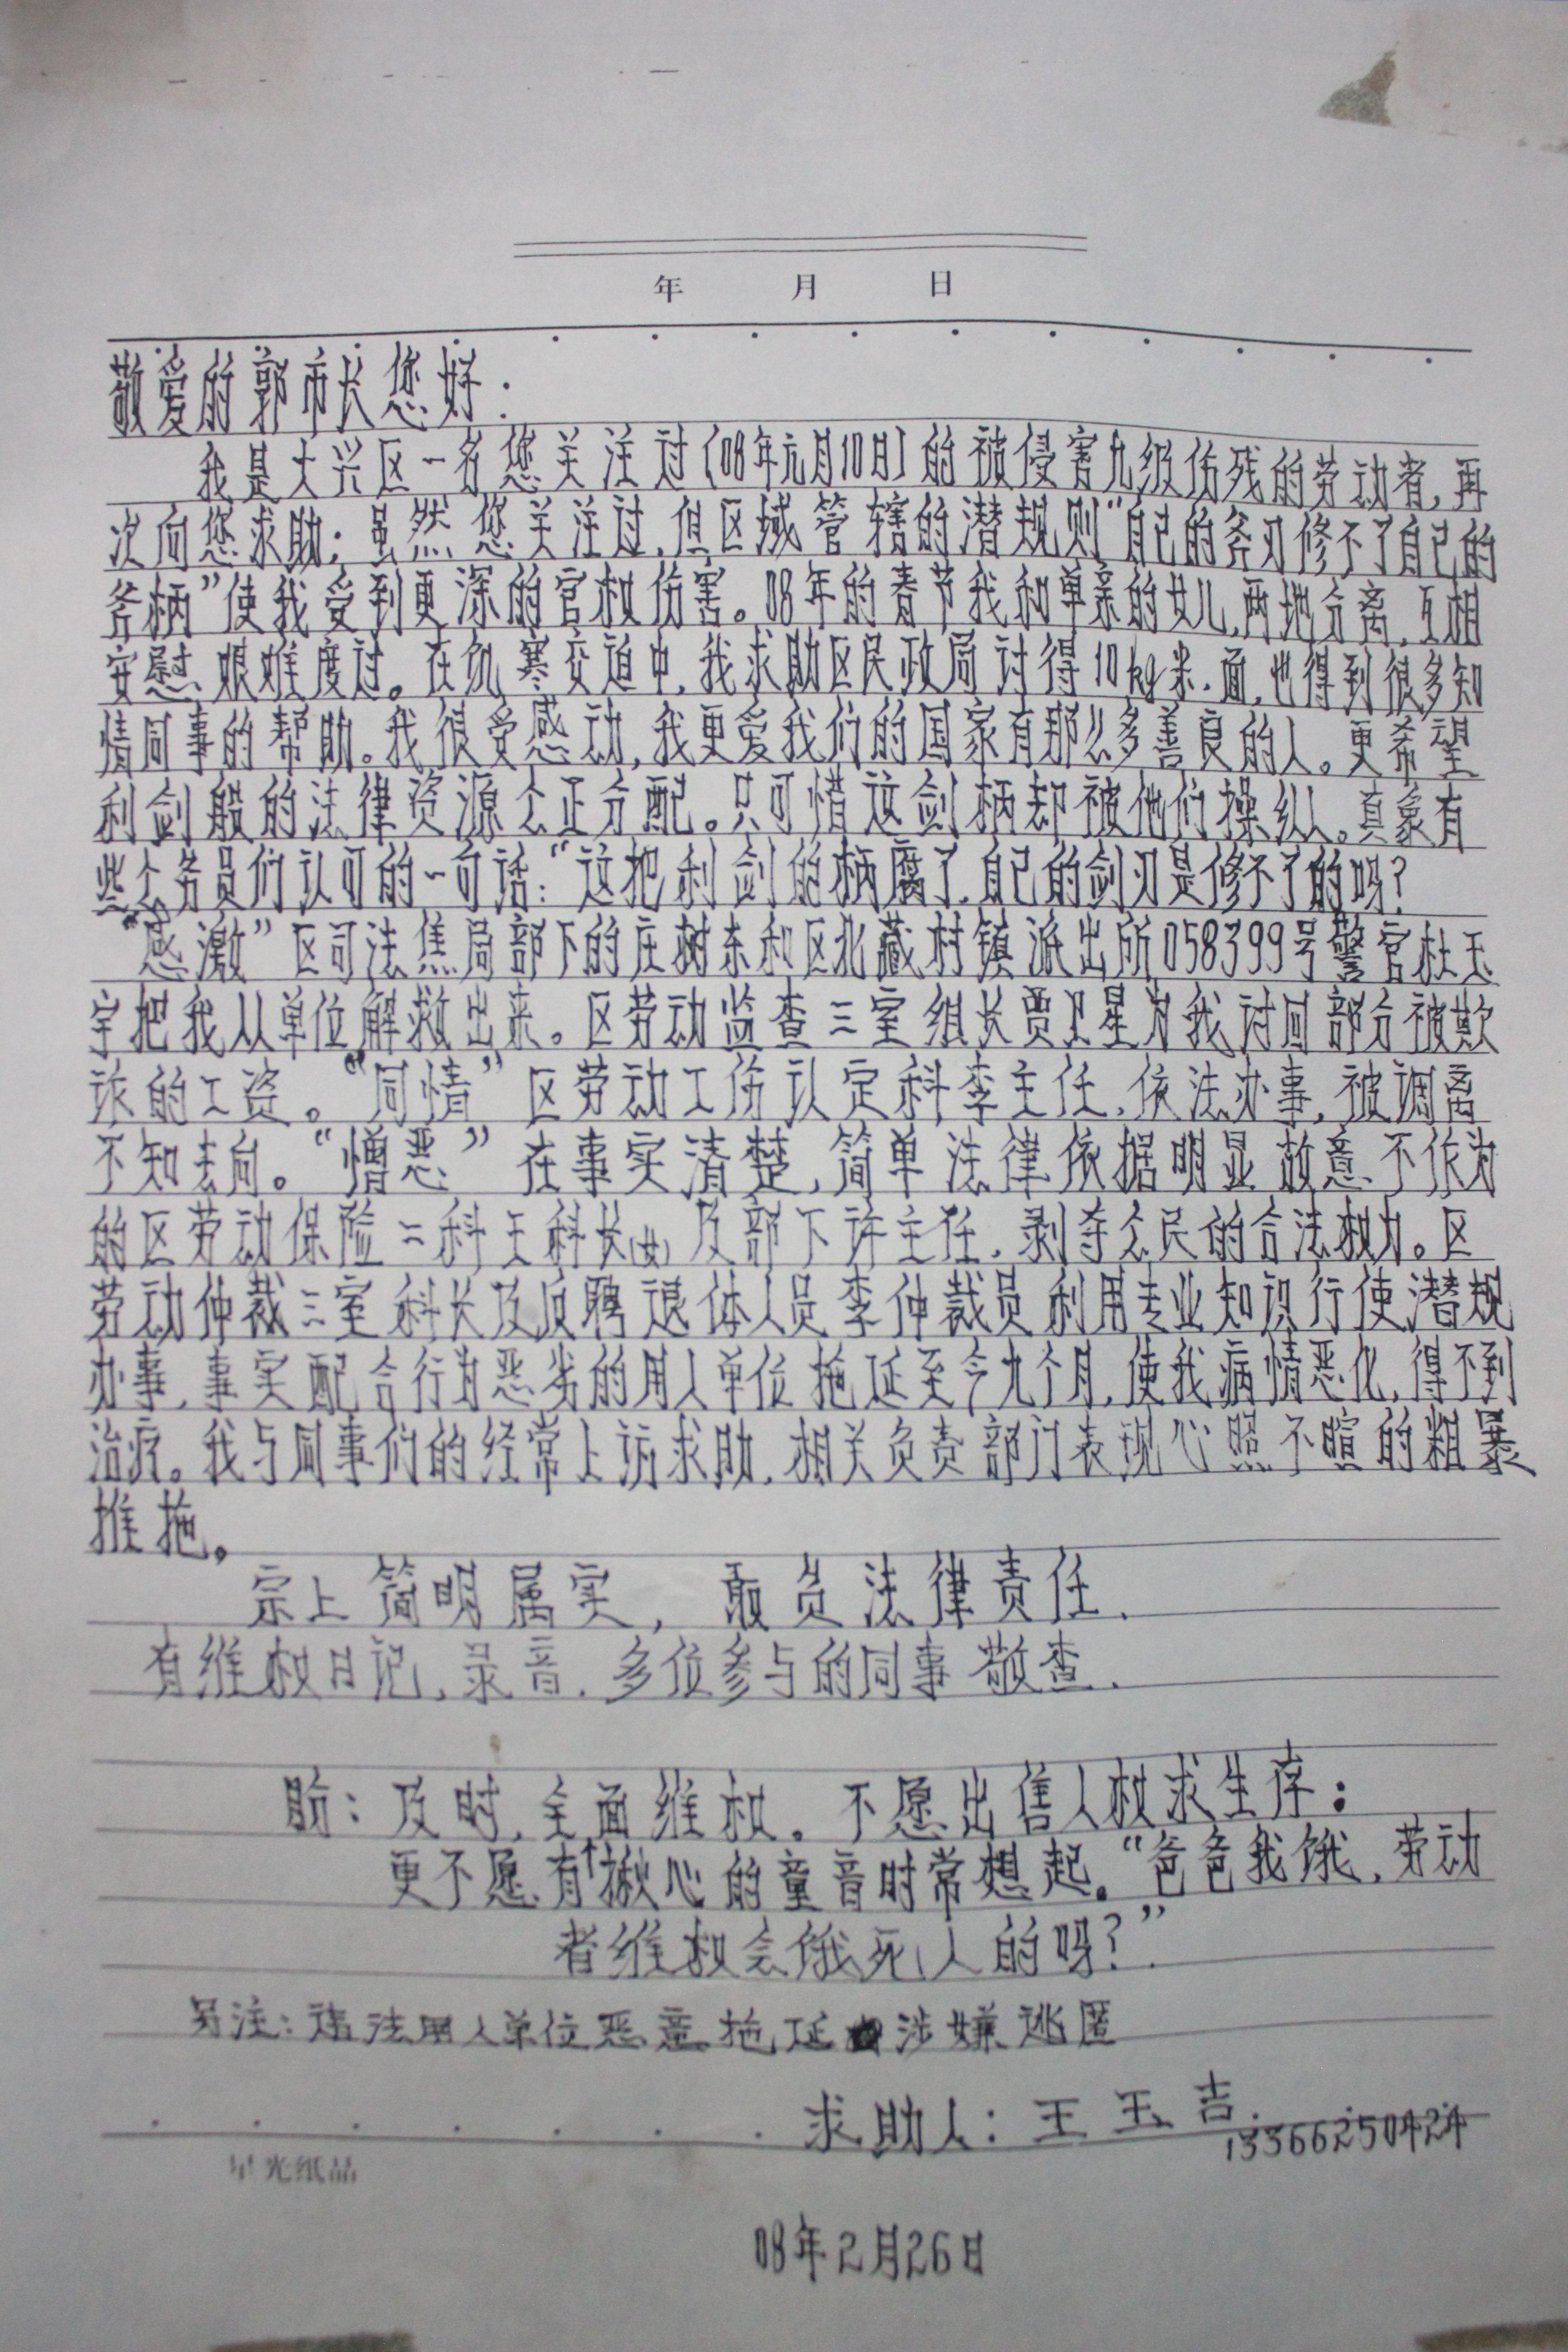 年 月 日
敬爱的郭市长您好:
我是大兴区一名您关注过(08年元月10日)的被侵害九级伤残的劳动者,再
次向您求助;虽然您关注过,但区域管辖的潜规则“自己的斧刃修不了自己的
斧柄”使我受到更深的官权伤害。08年的春节我和单亲的女儿,两地分离,互相
安慰艰难度过。在饥寒交迫中,我求助区民政局讨得10kg米.面,也得到很多知
情同事的帮助。我很受感动,我更爱我们的国家有那么多善良的人。更希望
利剑般的法律资源公正分配。只可惜这剑柄却被他们操纵。真象有
些公务员们认可的一句话:“这把利剑的柄腐了,自己的剑刃是修不了的吗?
“感激”区司法焦局部下的庄树东和区北藏村镇派出所058399号警官杜玉
宇把我从单位解救出来。区劳动监查三室组长贾卫星为我讨回部分被欺
诈的工资。“同情”区劳动工伤认定科李主任,依法办事,被调离
不知去向。“憎恶”在事实清楚,简单法律依据明显故意不作为
的区劳动保险二科王科长(女)及部下许主任,剥夺公民的合法权力。区
劳动仲裁三室科长及反聘退休人员李仲裁员利用专业知识行使潜规
办事,事实配合行为恶劣的用人单位拖延至今九个月,使我病情恶化,得不到
治疗。我与同事们的经常上访求助,相关负责部门表现心照不暄的粗暴
推拖。
宗上简明属实,敢负法律责任.
有维权日记,录音.多位参与的同事敬查.
盼:及时,全面维权。不愿出售人权求生存;
更不愿有个揪心的童音时常想起。“爸爸我饿,劳动
者维权会饿死人的吗?”
另注:违法用人单位恶意拖延涉嫌逃匿
求助人:王玉吉.
13366250424
星光纸品
08年2月26日